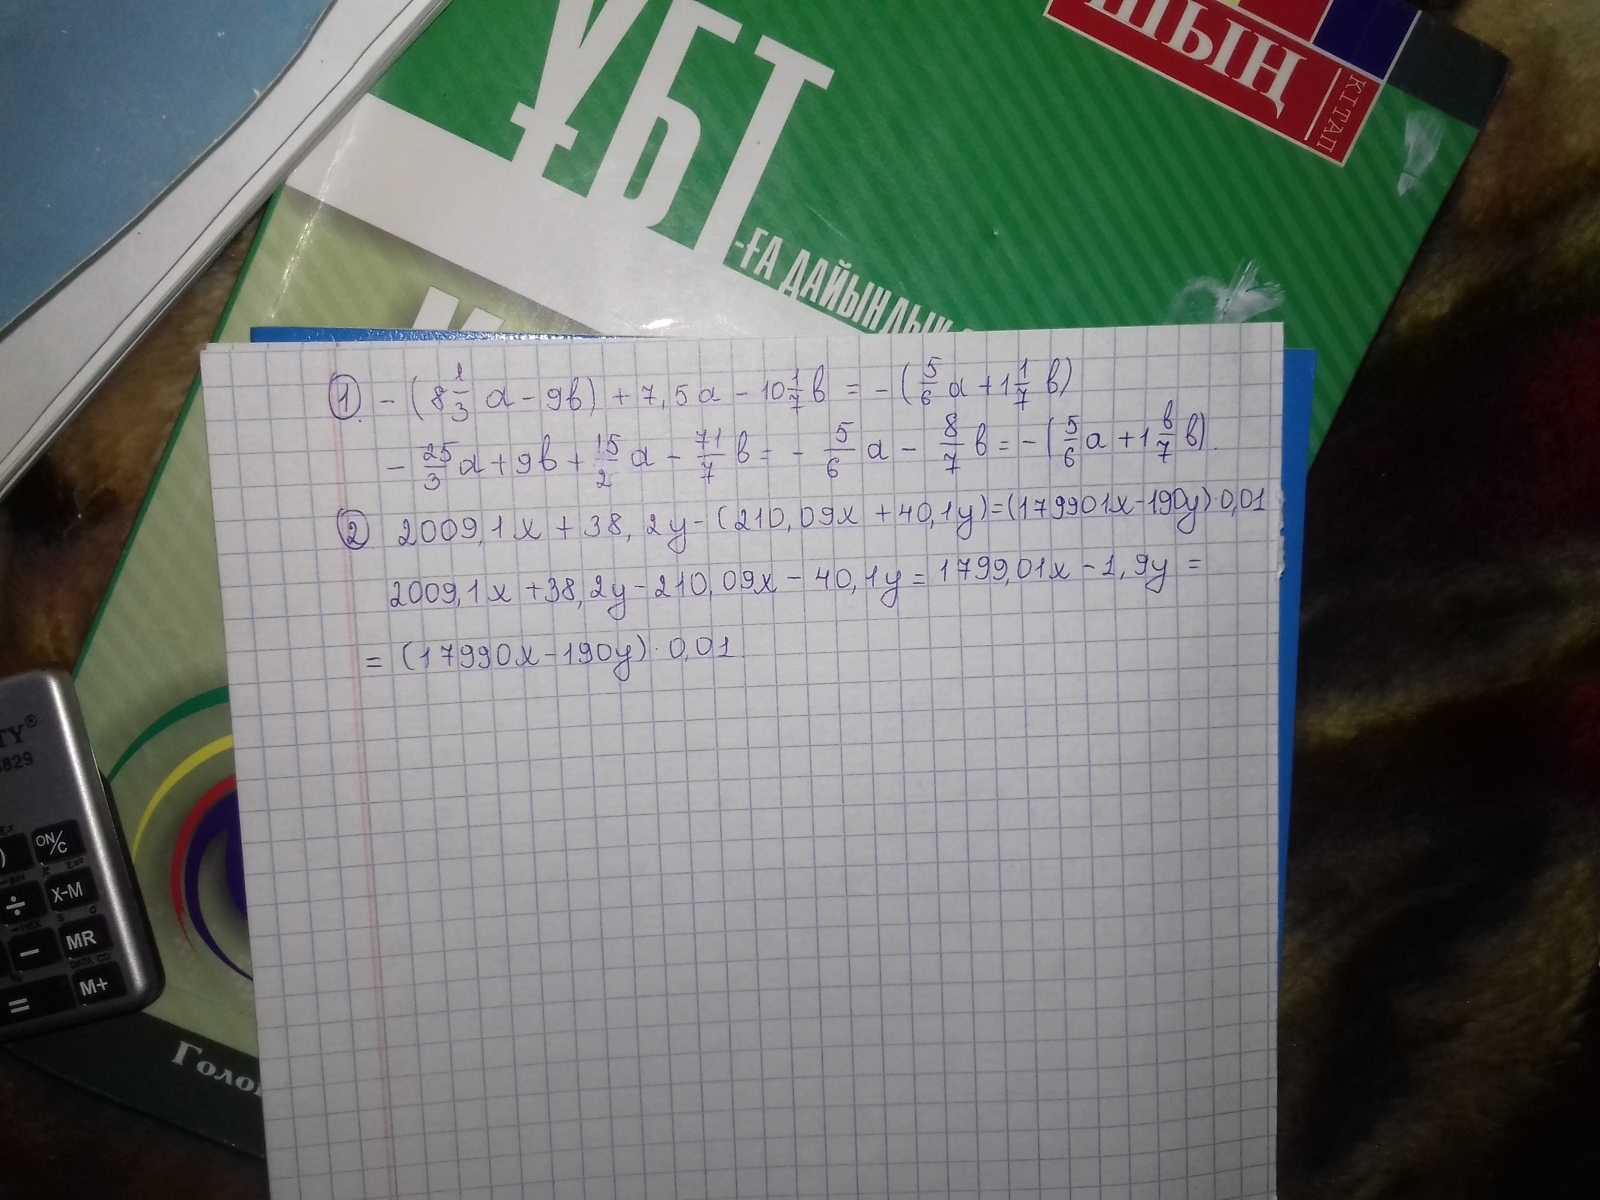 ШЫҢ
КІТАП
ҰБТ
-ҒА ДАЙЫНДЫҚ
① - (8 1/3 a - 9b) + 7,5a - 10 1/7 b = - (5/6 a + 1 1/7 b)
- 25/3 a + 9b + 15/2 a - 71/7 b = - 5/6 a - 8/7 b = - (5/6 a + 1 b/7 b).
② 2009,1x + 38,2y - (210,09x + 40,1y) = (179901x - 190y) · 0,01
2009,1x + 38,2y - 210,09x - 40,1y = 1799,01x - 1,9y =
= (17990x - 190y) · 0,01
TY®
829
ON/C
÷ X-M
− MR
DATA CD
= M+